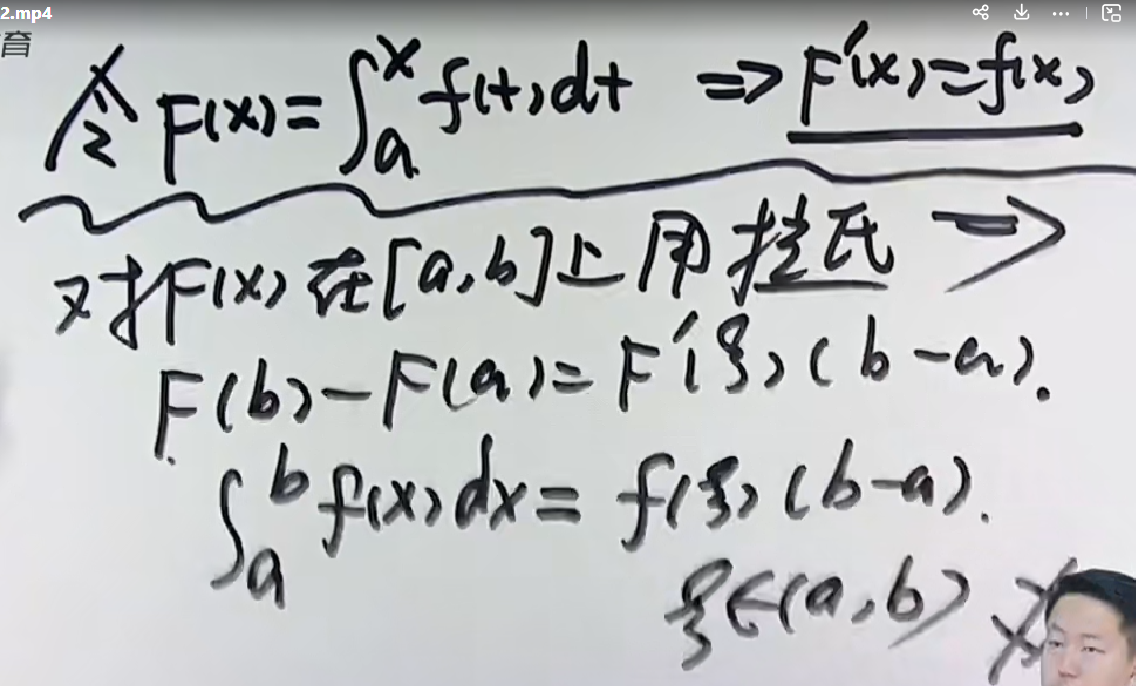 2.mp4
育
令 F(x)=∫_a^x f(t)dt ⇒ F'(x)=f(x)
对F(x)在[a,b]上用拉氏 ⇒
F(b)-F(a)=F'(ξ)(b-a).
∫_a^b f(x)dx=f(ξ)(b-a).
ξ∈(a,b)